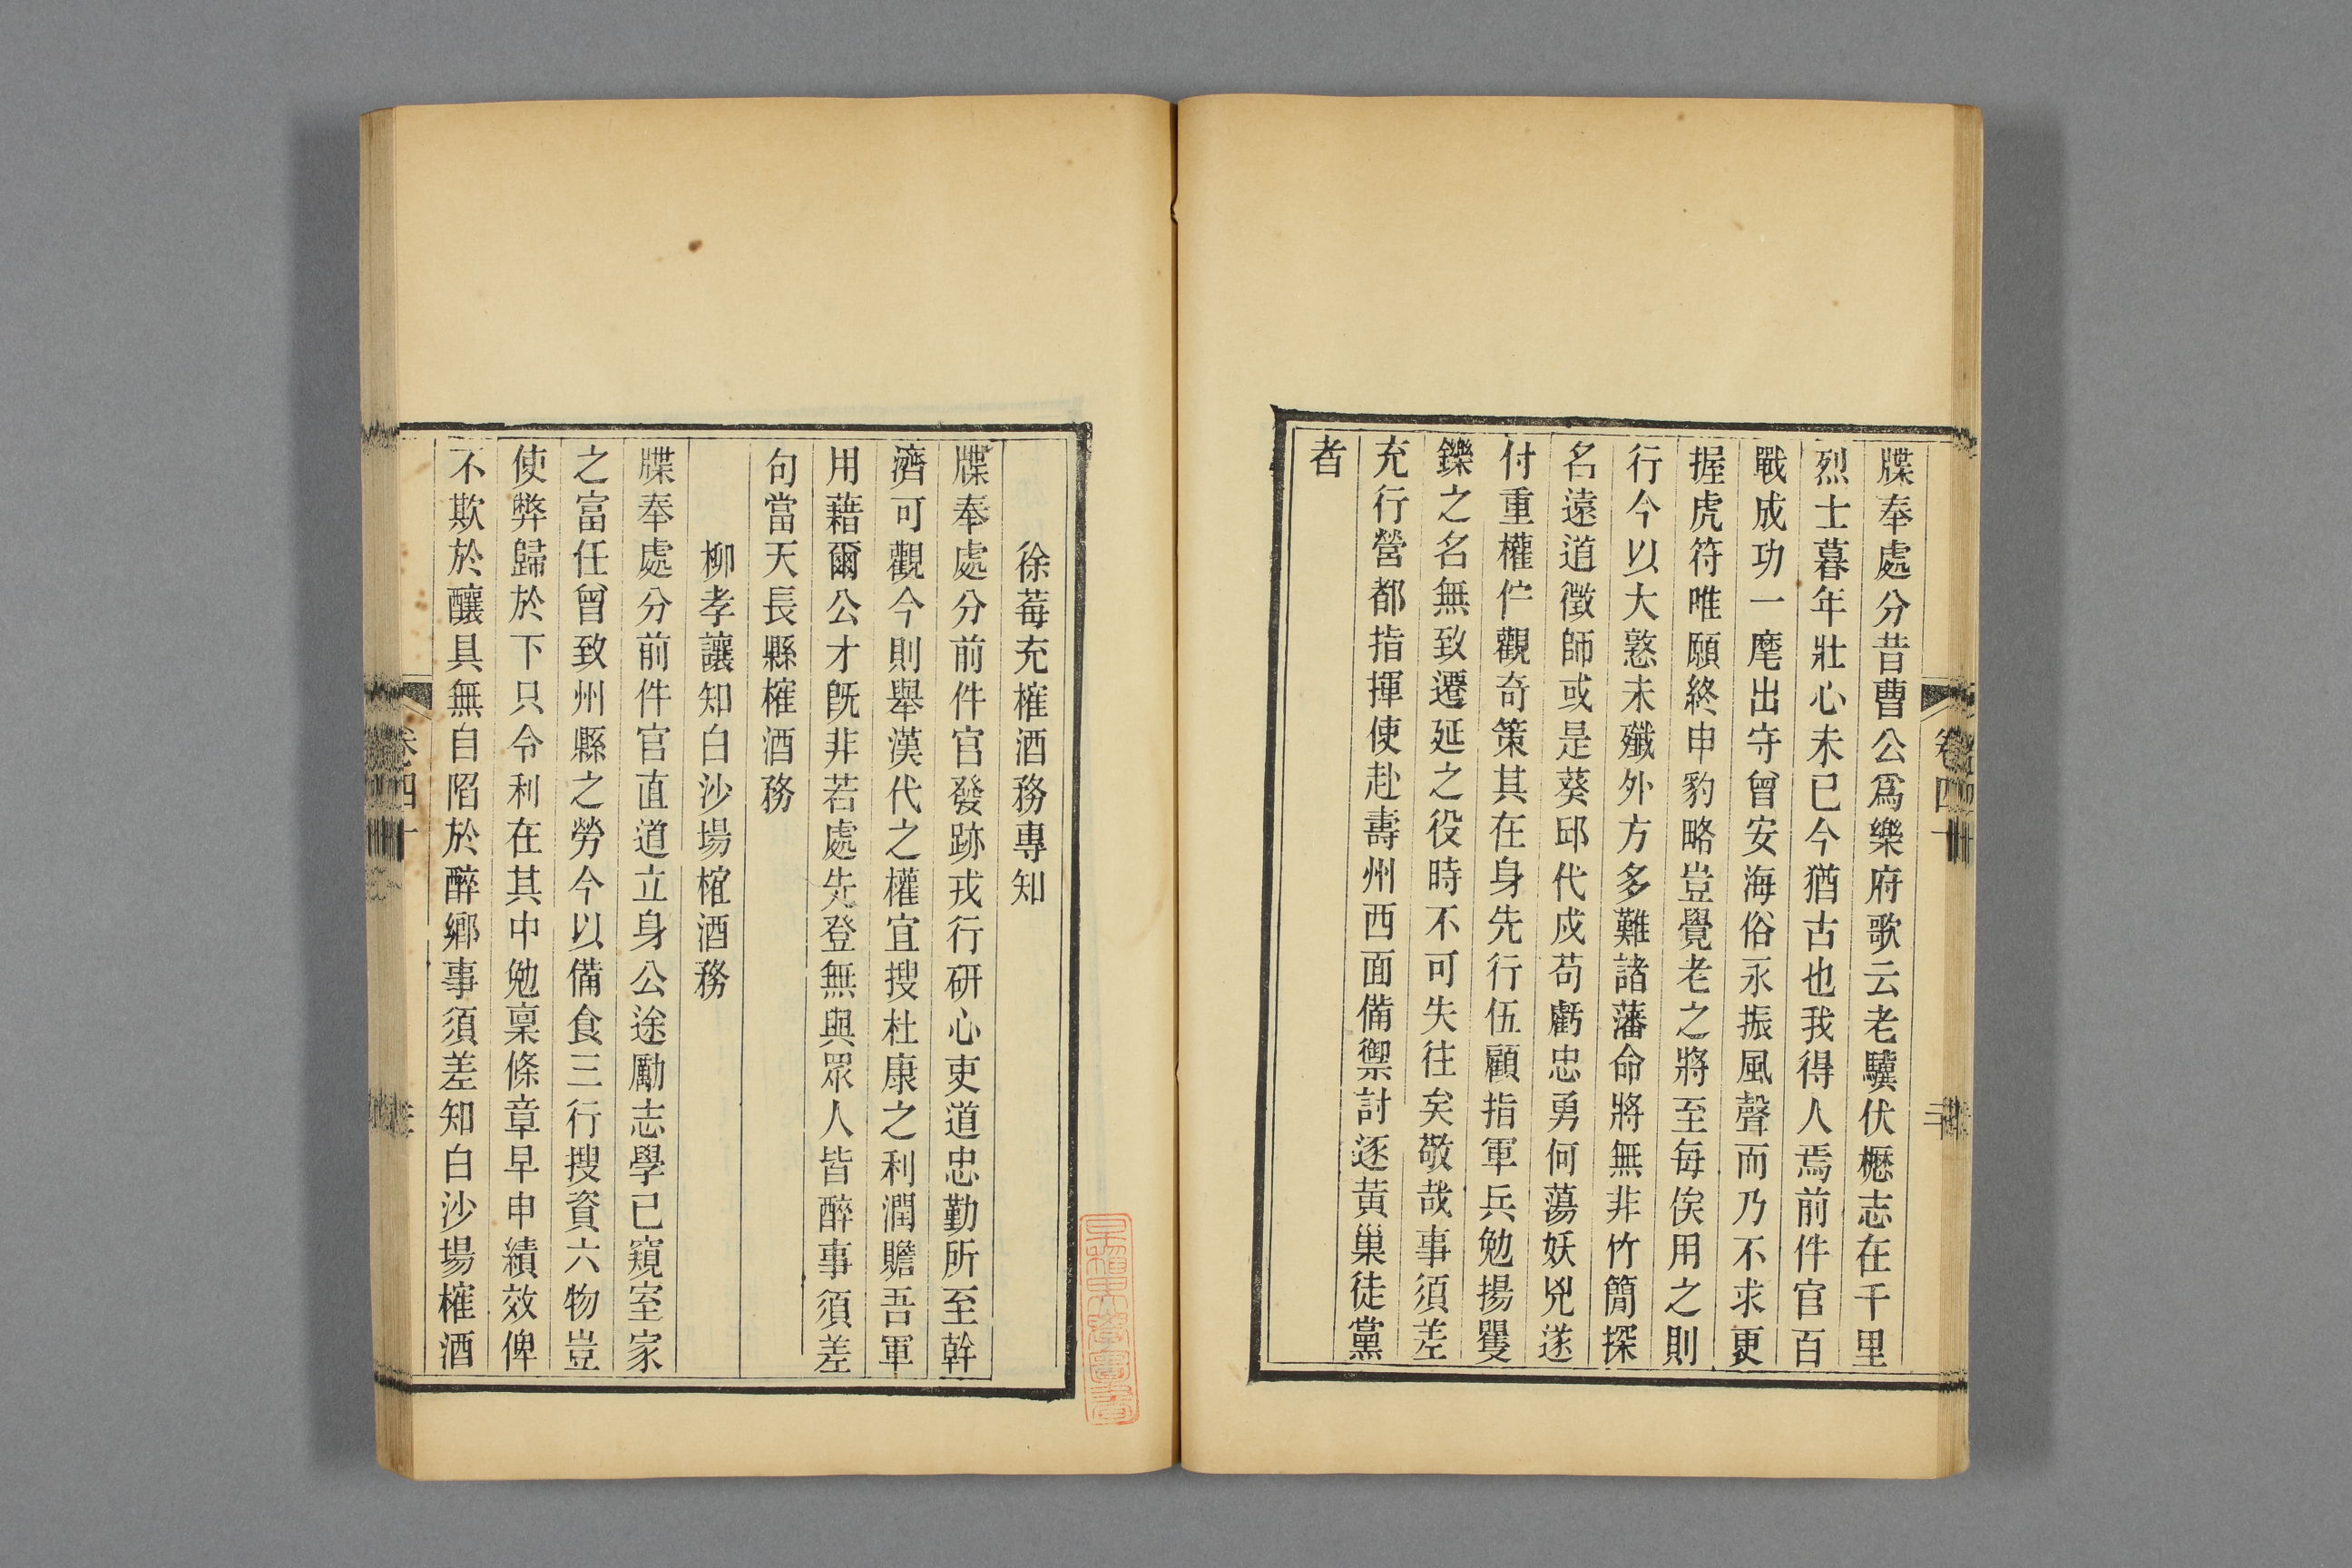 牒奉處分昔曹公爲樂府歌云老驥伏櫪志在千里
烈士暮年壯心未已今猶古也我得人焉前件官百
戰成功一麾出守曾安海俗永振風聲而乃不求更
握虎符唯願終申豹略豈覺老之將至每俟用之則
行今以大憝未殲外方多難諸藩命將無非竹簡探
名遠道徵師或是葵邱代戍苟虧忠勇何蕩妖兇遂
付重權伫觀奇策其在身先行伍顧指軍兵勉揚矍
鑠之名無致遷延之役時不可失往矣敬哉事須差
充行營都指揮使赴壽州西面備禦討逐黃巢徒黨
者
卷四十
徐莓充榷酒務專知
牒奉處分前件官發跡戎行研心吏道忠勤所至幹
濟可觀今則舉漢代之權宜搜杜康之利潤贍吾軍
用藉爾公才既非若處先登無與眾人皆醉事須差
句當天長縣榷酒務
柳孝讓知白沙場榷酒務
牒奉處分前件官直道立身公途勵志學已窺室家
之富任曾致州縣之勞今以備食三行搜資六物豈
使弊歸於下只令利在其中勉稟條章早申績效俾
不欺於釀具無自陷於醉鄉事須差知白沙場榷酒
卷四十